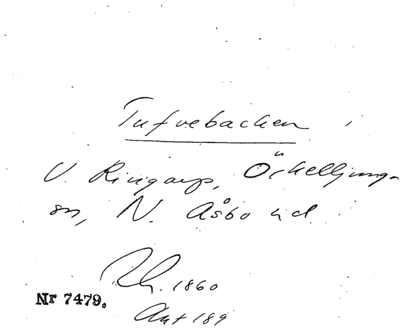 Tufvebacken
V. Ringarp, Örkelljunga
sn, N. Åsbo hd
1860
Nr 7479.
Aut 189